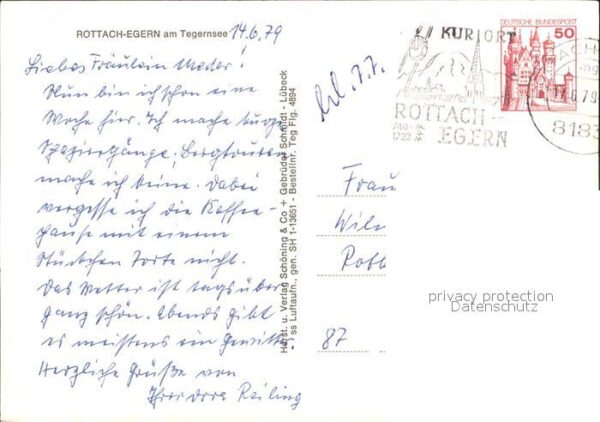 ROTTACH-EGERN am Tegernsee 14.6.79
Liebes Fräulein Meder!
Nun bin ich schon eine
Woche hier. Ich mache kurze
Spaziergänge, Bergtouren
mache ich keine. Dabei
vergesse ich die Kaffee-
pause mit einem
Stückchen Torte nicht.
Das Wetter ist tagsüber
ganz schön. Abends gibt
es meistens ein Gewitter
Herzliche Grüße von
Reiling
Herst. u. Verlag Schöning & Co + Gebrüder Schmidt - Lübeck
ss Luftaufn., gen. SH 1-13651 - Bestellnr. Teg Flg. 4894
KURORT
ROTTACH-
EGERN
740-
DEUTSCHE BUNDESPOST
50
6.79
8183
Frau
87
privacy protection
Datenschutz